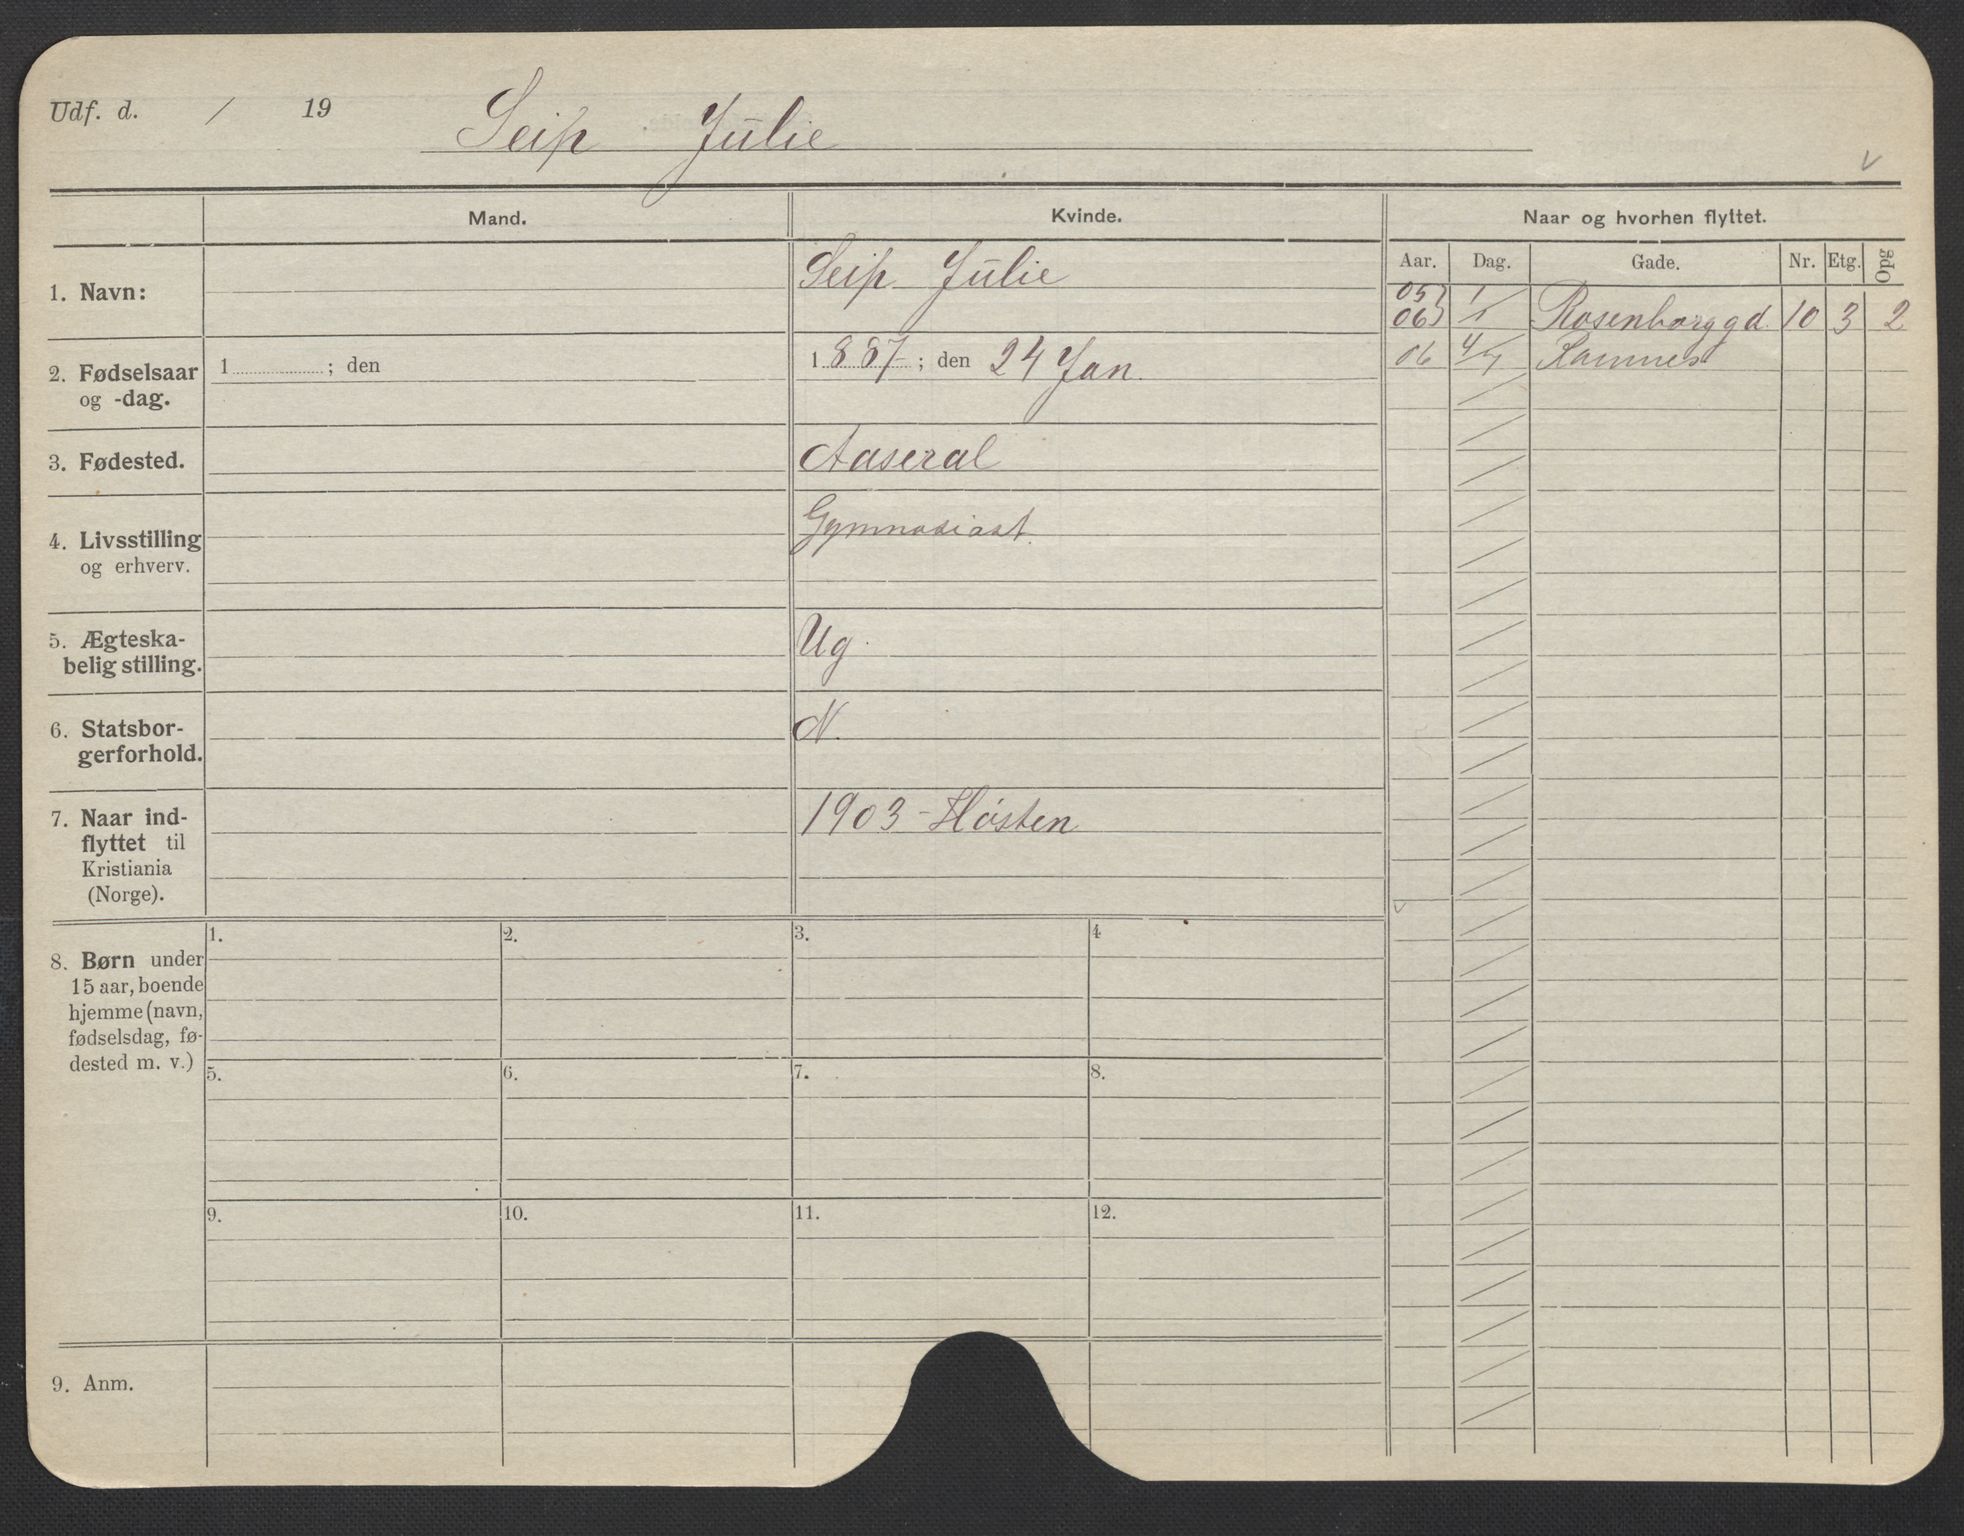 Udf. d. / 19
Seip Julie
Mand.
Kvinde.
Naar og hvorhen flyttet.
Aar. Dag. Gade. Nr. Etg. Opg
1. Navn:
Seip Julie
05
06 1/1 Rosenborggd. 10 3 2
06 4/7
2. Fødselsaar
og -dag.
1 ; den
1887 ; den 24 Jan.
3. Fødested.
Aaseral
4. Livsstilling
og erhverv.
Gymnasiast.
5. Ægteska-
belig stilling.
Ug.
6. Statsbor-
gerforhold.
N.
7. Naar ind-
flyttet til
Kristiania
(Norge).
1903 - Høsten
8. Børn under
15 aar, boende
hjemme (navn,
fødselsdag, fø-
dested m. v.)
1. 2. 3. 4
5. 6. 7. 8.
9. 10. 11. 12.
9. Anm.